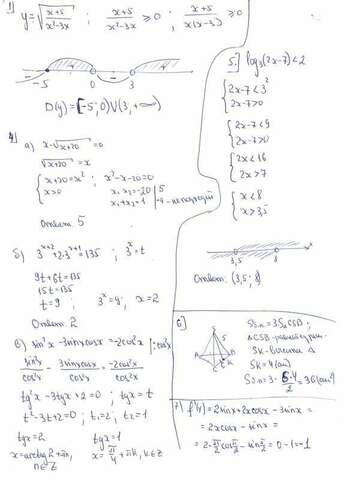 1) y=√(x+5)/(x²-3x) ; (x+5)/(x²-3x) ≥0 ; (x+5)/(x(x-3)) ≥0
- + - +
-5 0 3
D(y)= [-5; 0)∪(3; +∞)
4) a) x-√(x+20) =0
√(x+20) =x
{x+20=x² ; x²-x-20=0
x>0 x₁x₂=-20 | 5
x₁+x₂=1 | -4 -
Ответ 5
б) 3^(x+2)+2·3^(x+1)=135 ; 3^x=t
9t+6t=135
15t=135
t=9 ; 3^x=9; x=2
Ответ 2
в) sin²x -3sinxcosx=-2cos²x |:cos²x
sin²x/cos²x - 3sinxcosx/cos²x = -2cos²x/cos²x
tg²x -3tgx+2=0 ; tgx=t
t²-3t+2=0 ; t₁=2; t₂=1
tgx=2 tgx=1
x=arctg2+πn, x=π/4+πk, k∈Z
n∈Z
5.) log₃(2x-7)<2
{2x-7<3²
2x-7>0
{2x-7<9
2x-7>0
{2x<16
2x>7
{x<8
x>3,5
3,5 8 x
Ответ: (3,5; 8)
6)
S
C
A
K
B
Sб.п.=3S△CSB;
△CSB-равнобедрен.
SK-высота △
SK=4(см)
Sб.п=3· 6·4/2 =36(см²)
7) f'(x) = 2sinx+2xcosx -3sinx=
= 2xcosx - sinx=
= 2·π/2 cosπ/2 - sinπ/2 = 0-1=-1